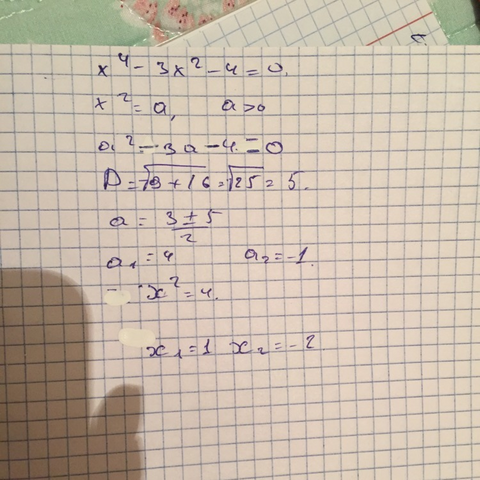 x⁴ - 3x² - 4 = 0.
x² = a, a > 0
a² - 3a - 4 = 0
D = √9 + 16 = √25 = 5.
a = 3 ± 5 / 2
a₁ = 4 a₂ = -1.
x² = 4.
x₁ = 1 x₂ = -2